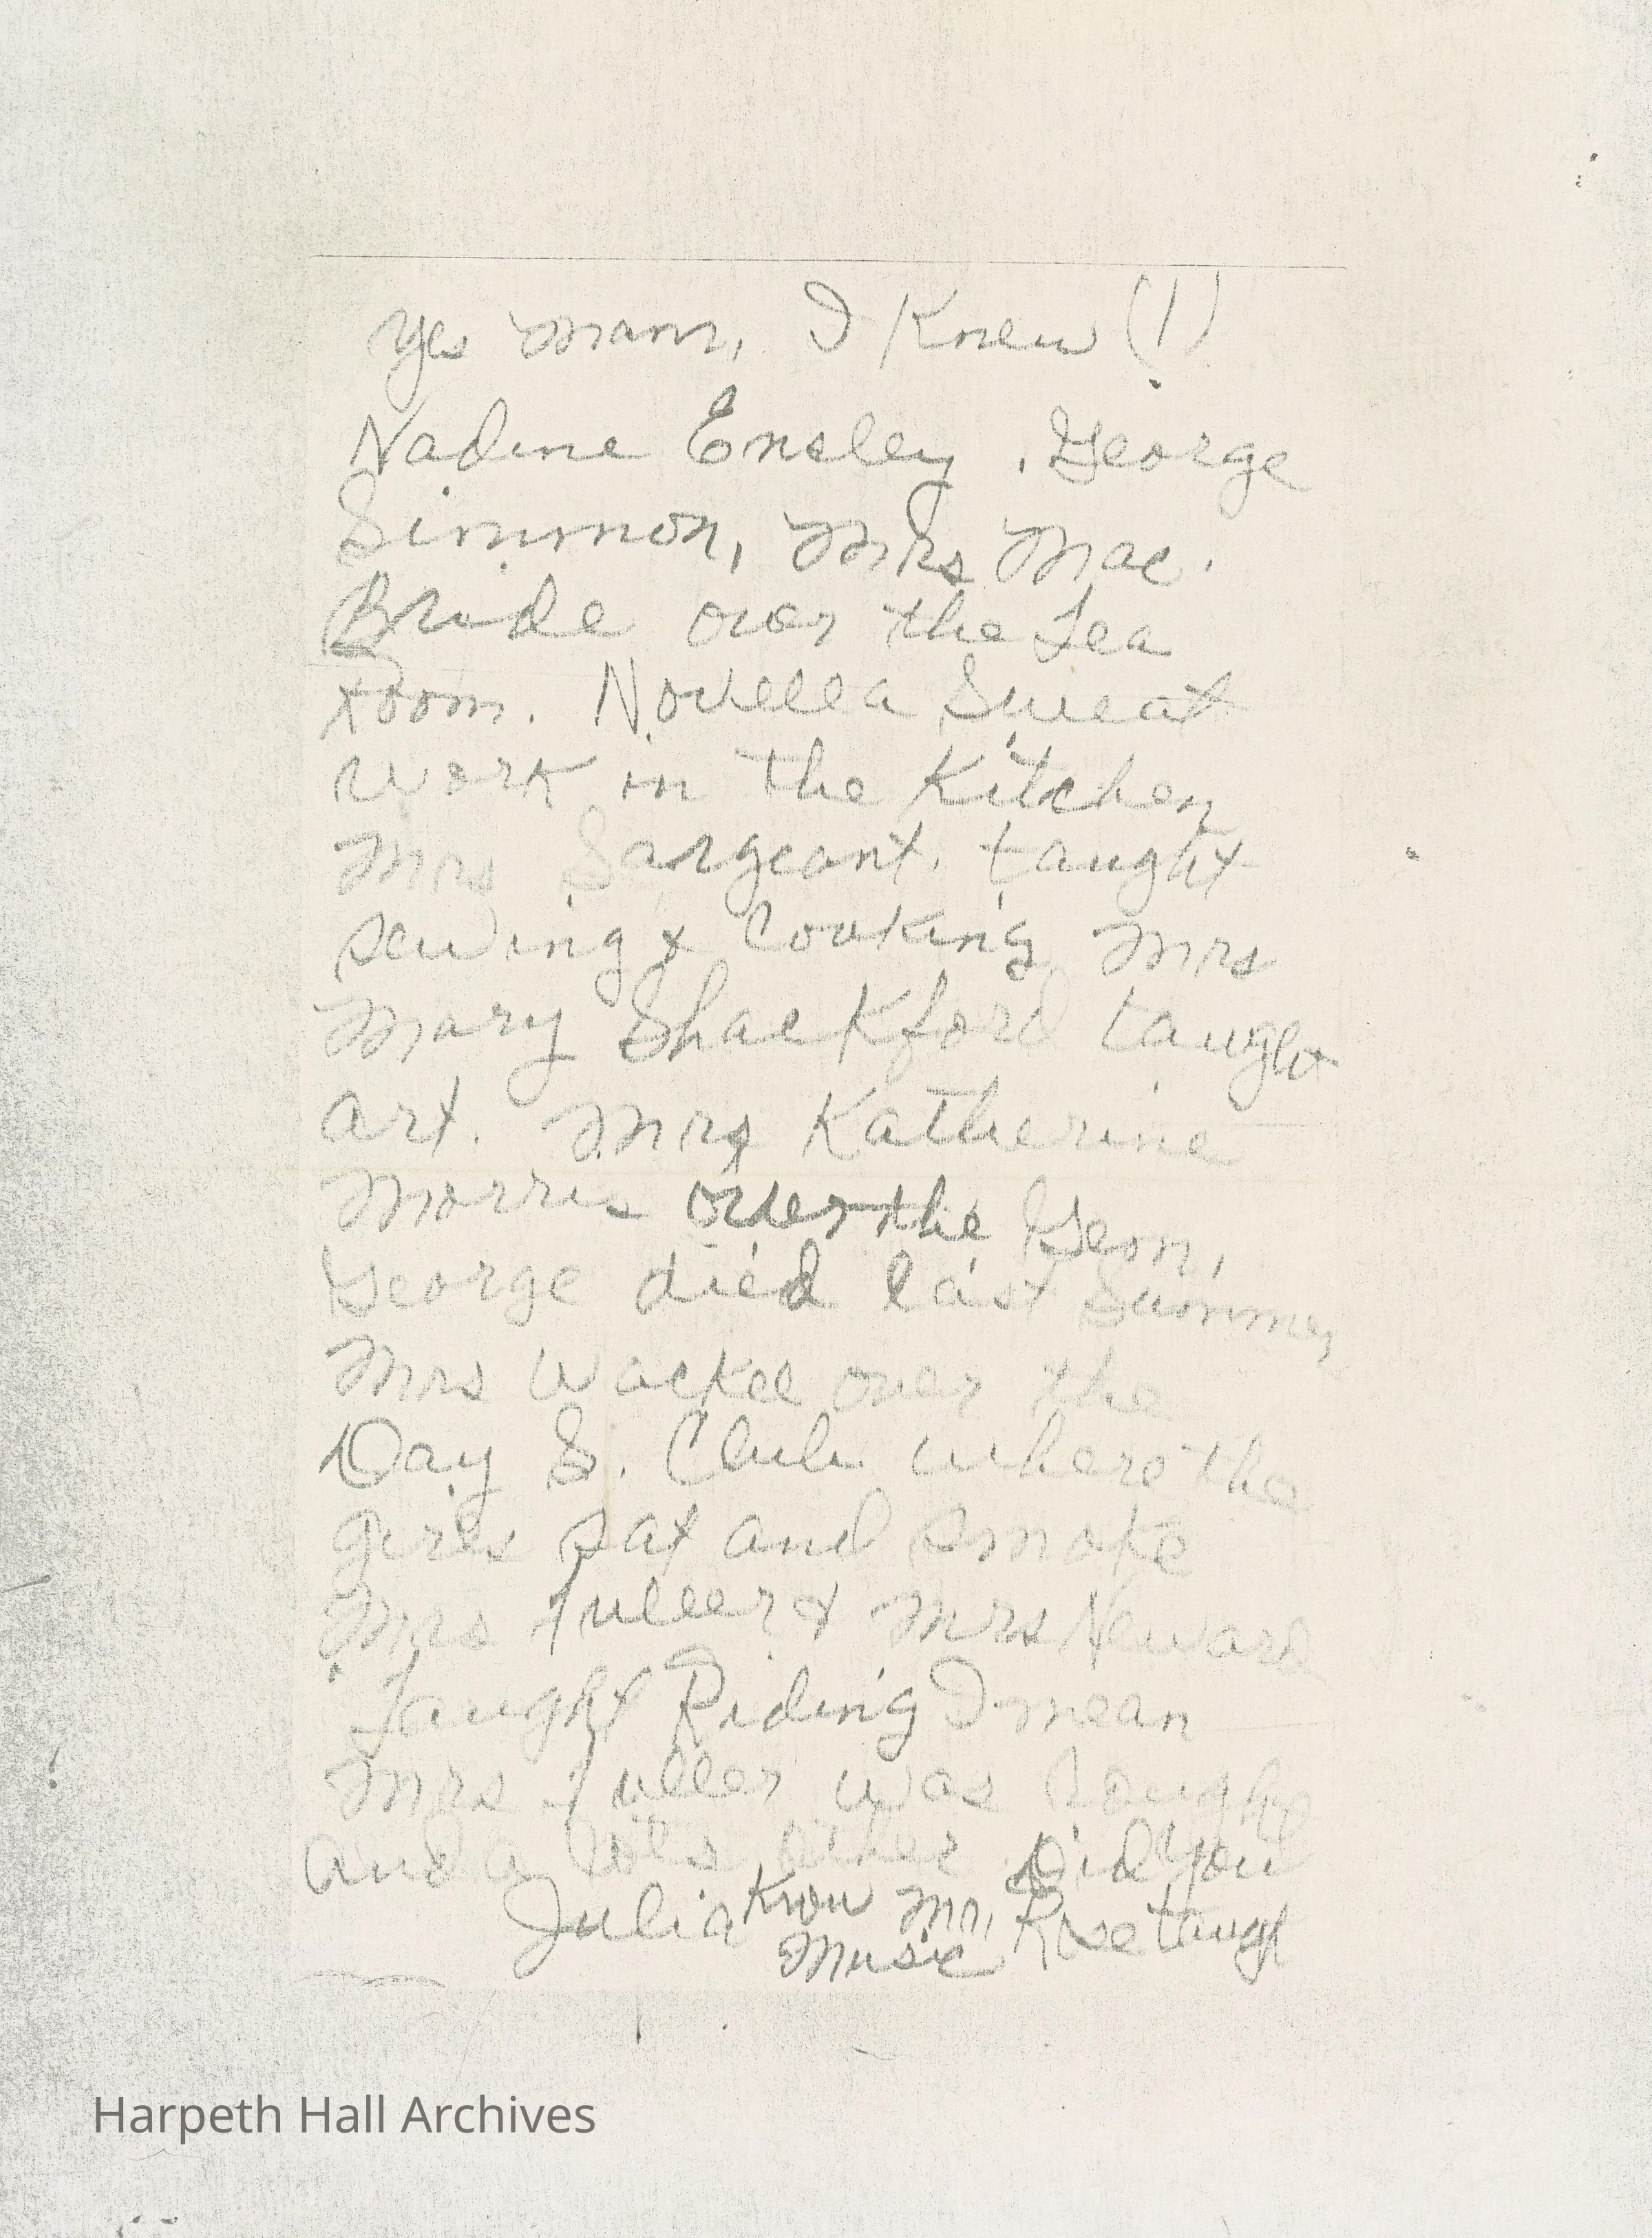 Yes mam, I Knew (1)
Nadine Ensley, George
Simmon, Mrs Mac.
Bride over the Tea
Room. Novella Sweat
work in the Kitchen
Mrs Sargeant. taught
sewing & Cooking Mrs
Mary Shackford taught
art. Mrs Katherine
Morris over the Gem,
George died last Summer
Mrs Wackee over the
Day S. Club where the
girls sat and smoke
Mrs Fuller & Mrs Heward
Taught Riding I mean
Mrs Fuller was
and a lots other Did You
Julia Know Mr. Rose taugh
Music
Harpeth Hall Archives